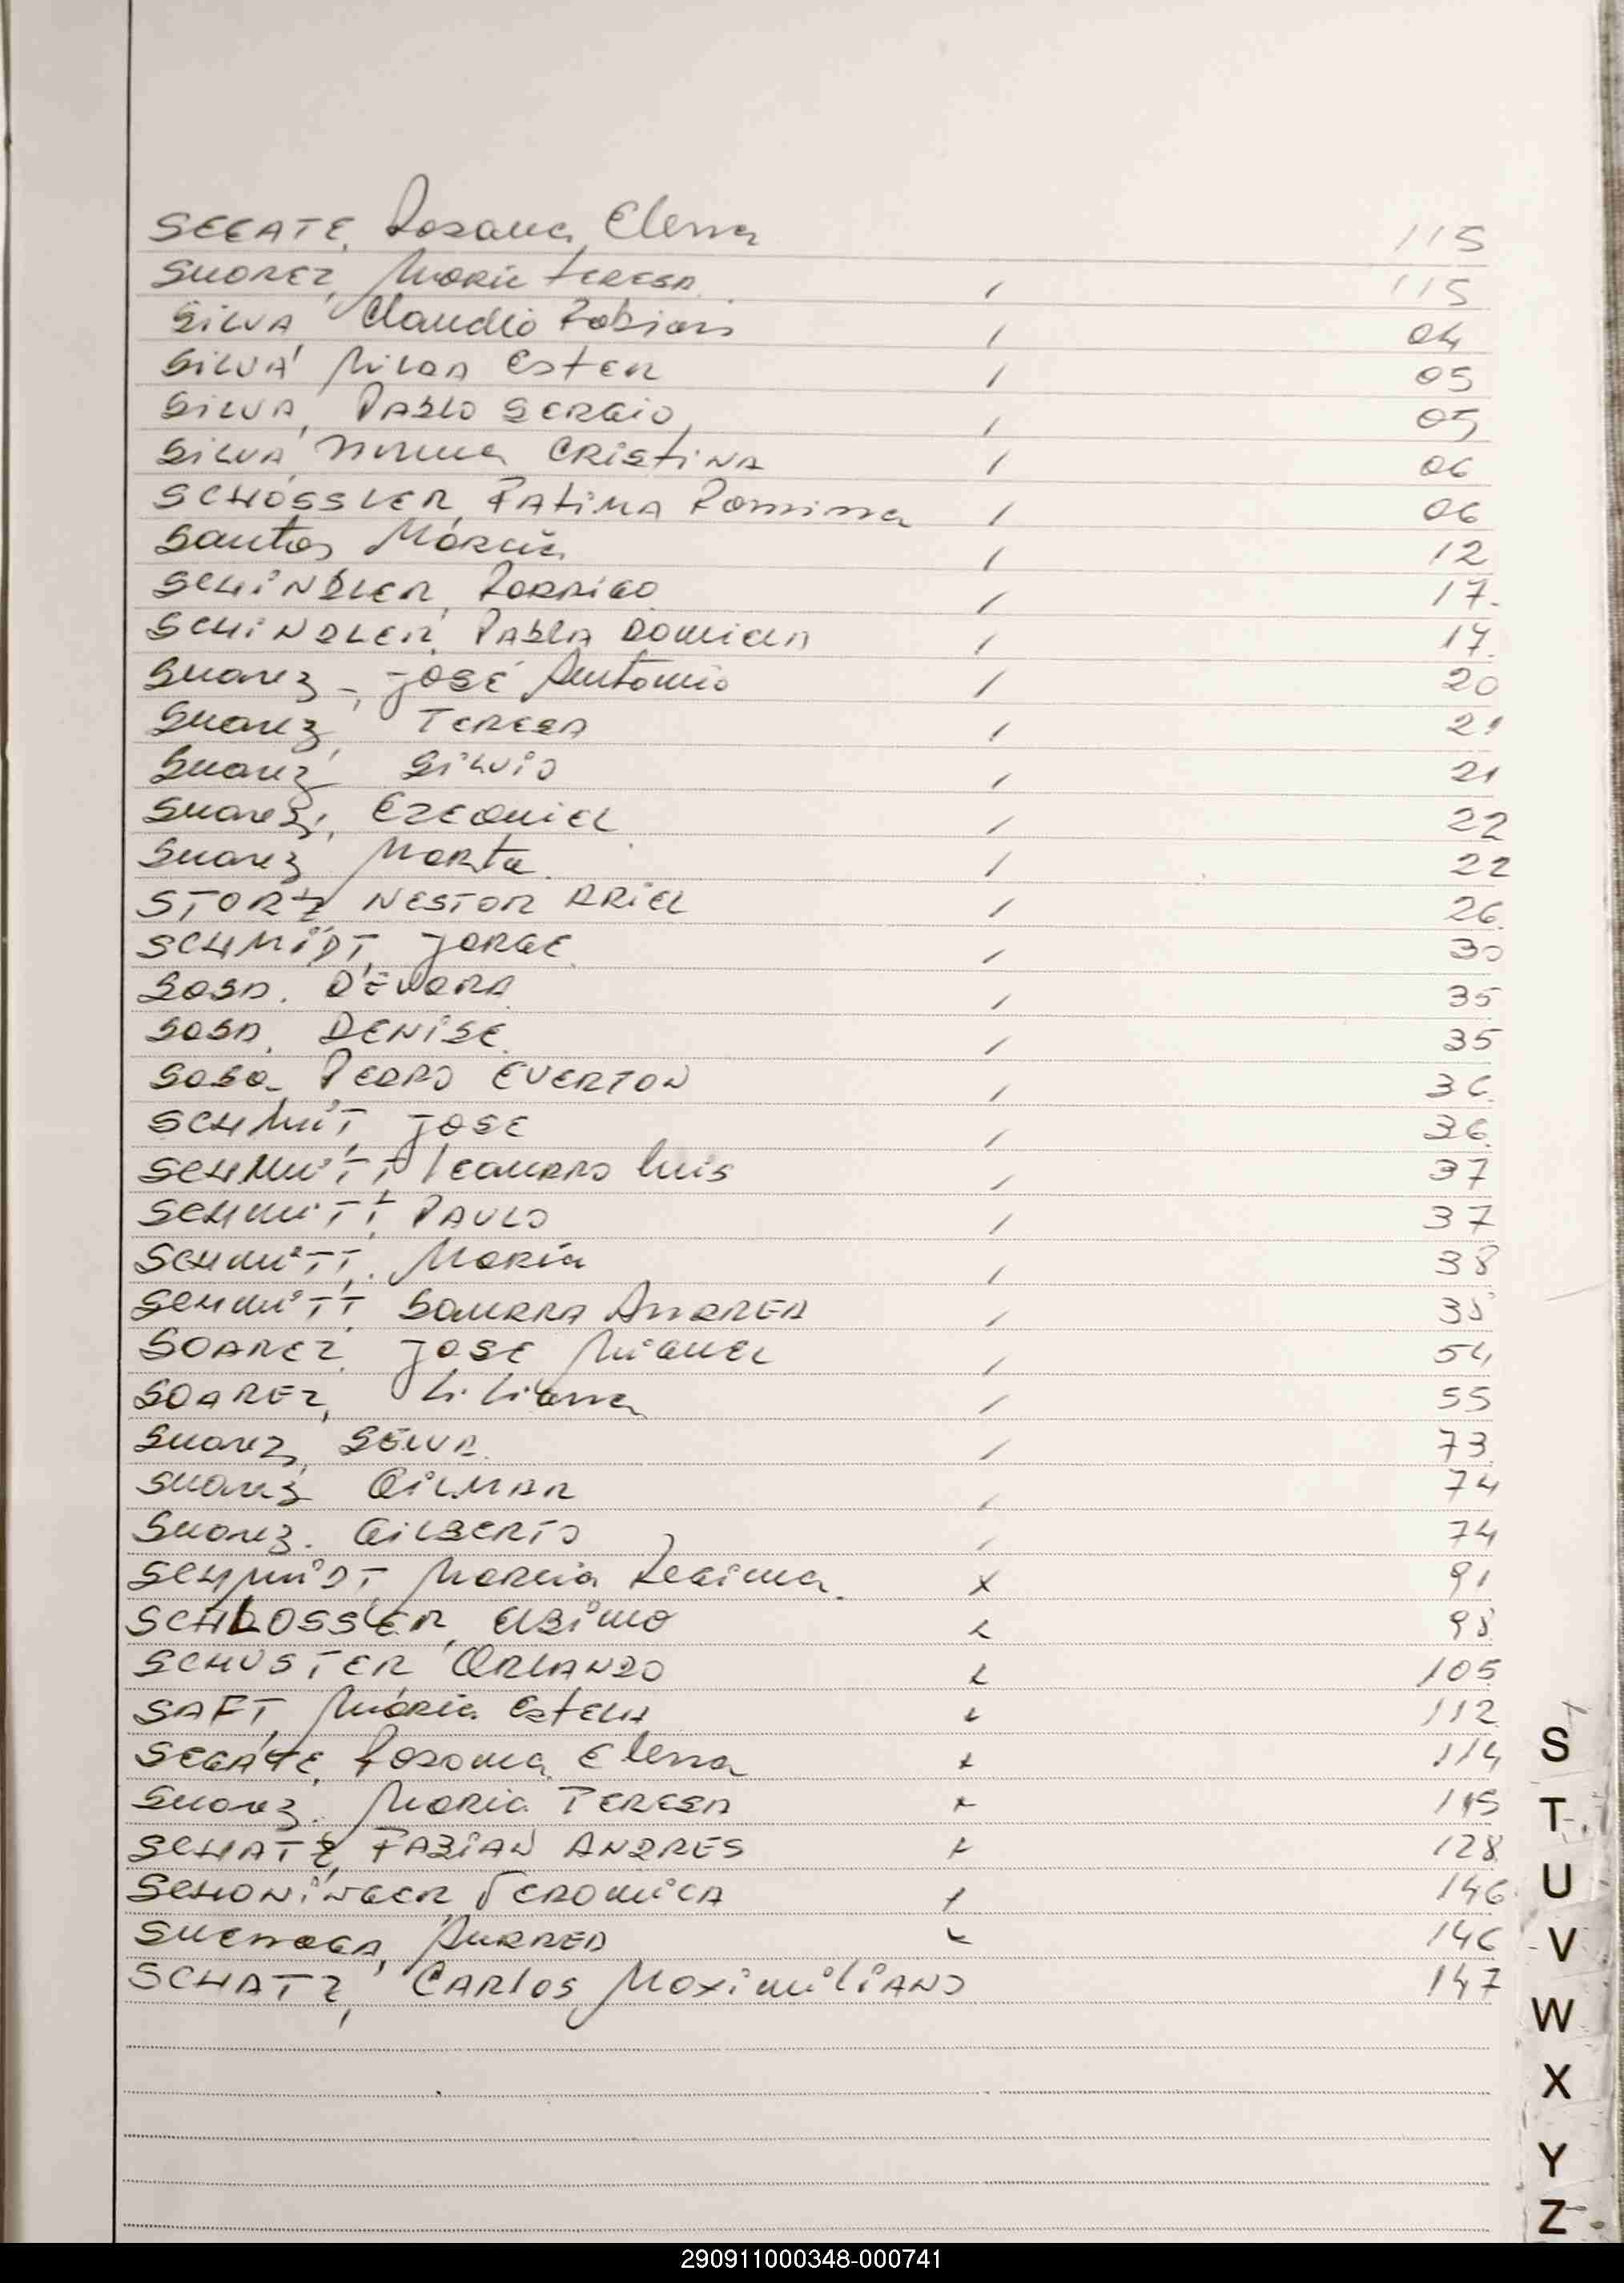 SEGATE, Rosana Elena 115
SUAREZ, Maria TERESA / 115
SILVA, Claudio Fabian / 04
SILVA, Nilda ESTER / 05
SILVA, PABLO SERGIO / 05
SILVA, Norma CRISTINA / 06
SCHOSSLER, FATIMA Romina / 06
Santos Marcia / 12
SCHINDLER, RODRIGO / 17.
SCHINDLER, PABLA / 17.
Suarez, JOSÉ Antonio / 20
Suarez, TERESA / 21
Suarez, SILVIO / 21
Suarez, EZEQUIEL / 22
Suarez, Marta / 22
STORTZ NESTOR ARIEL / 26.
SCHMIDT, JORGE / 30
SOSA. DÉVORA / 35
SOSA. DENISE / 35
SOSA PEDRO EVERTON / 36
SCHMIT, JOSE / 36
SCHMITT, LEANDRO Luis / 37
SCHMITT, PAULO / 37
SCHMITT, Maria / 38
SCHMITT, SANDRA ANDREA / 38
SOAREZ, JOSE MIGUEL / 54
SOAREZ, Liliana / 55
Suarez, / 73
Suarez GILMAR / 74
Suarez. GILBERTO / 74
SCHMIDT, Marcia Regina x 91
SCHLOSSLER, ALBINO x 98
SCHUSTER, ORLANDO x 105
SAFT, Maria ESTELA x 112
SEGATE, Rosana Elena x 114
Suarez. Maria TERESA x 115
SCHATZ, FABIAN ANDRES x 128
SCHONINGER, VERONICA x 146
ANDREA x 146
SCHATZ, CARLOS MAXIMILIANO 147
S
T
U
V
W
X
Y
Z
290911000348-000741